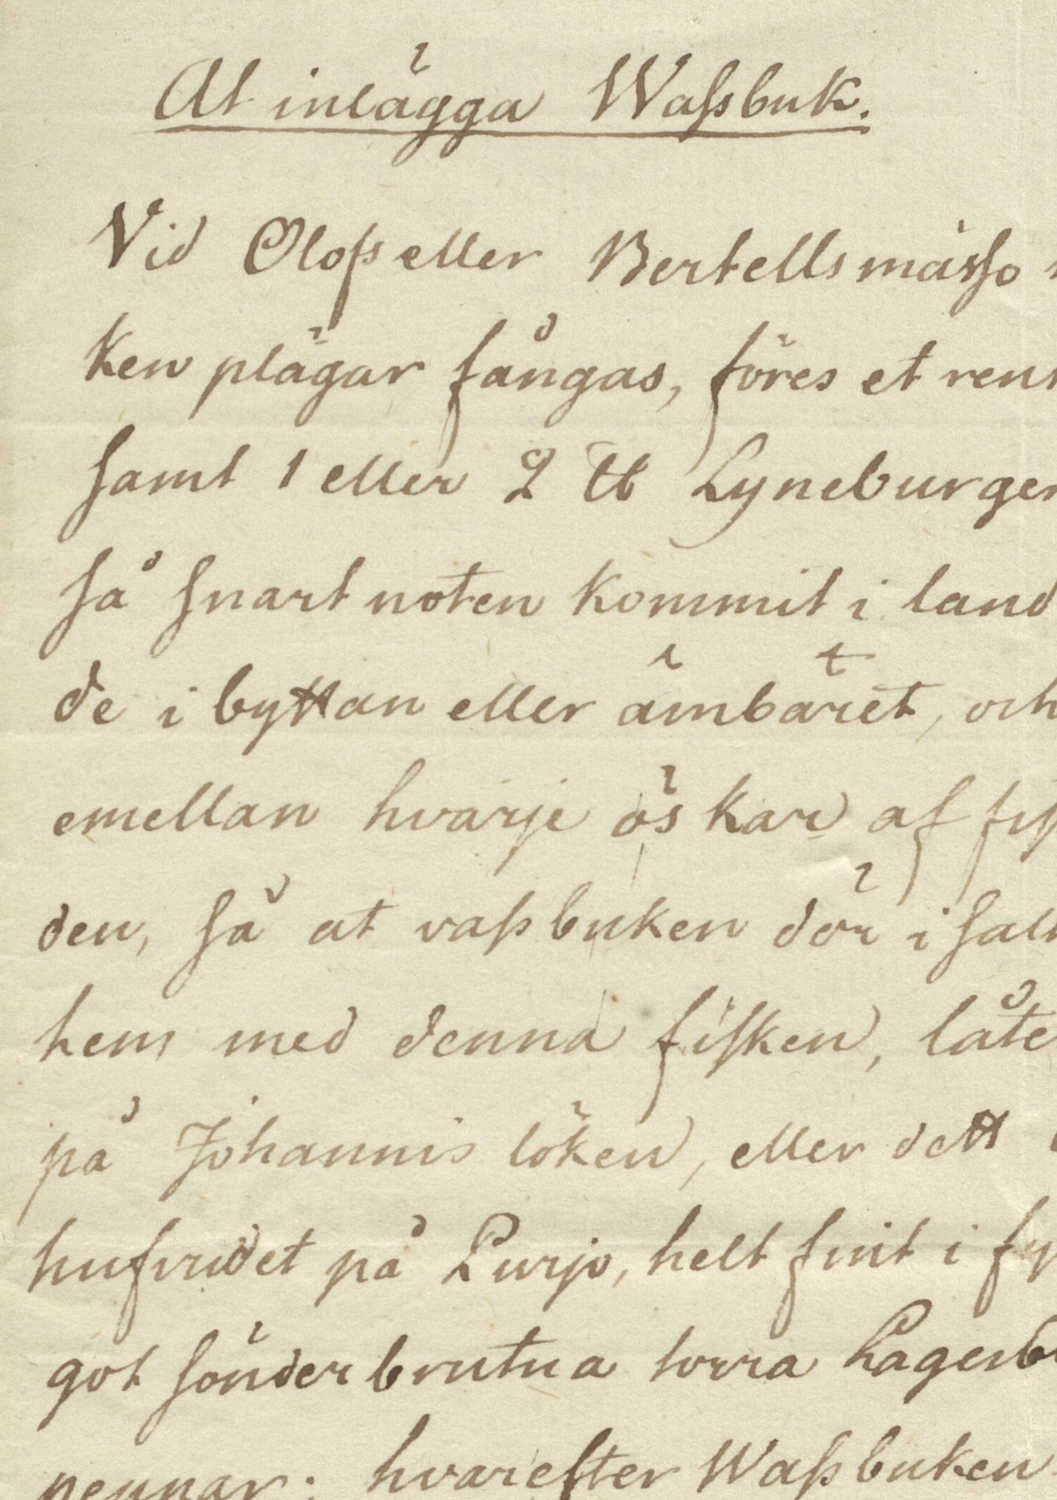 At inlägga Wassbuk.
Vid Olofs eller Bertells mässo
ken plägar fångas, föres et rent
samt 1 eller 2 ℔ Lyneburger
så snart noten kommit i land
de i byttan eller ämbäret, och
emellan hvarje öskar af
den, så at vassbuken dör i salt
hem med denna fisken, låte
på Johannis löken, eller dett
hufvudet på Purjo, helt fint i
got sönderbrutna torra Lagerb
peppar; hvarefter Wassbuken